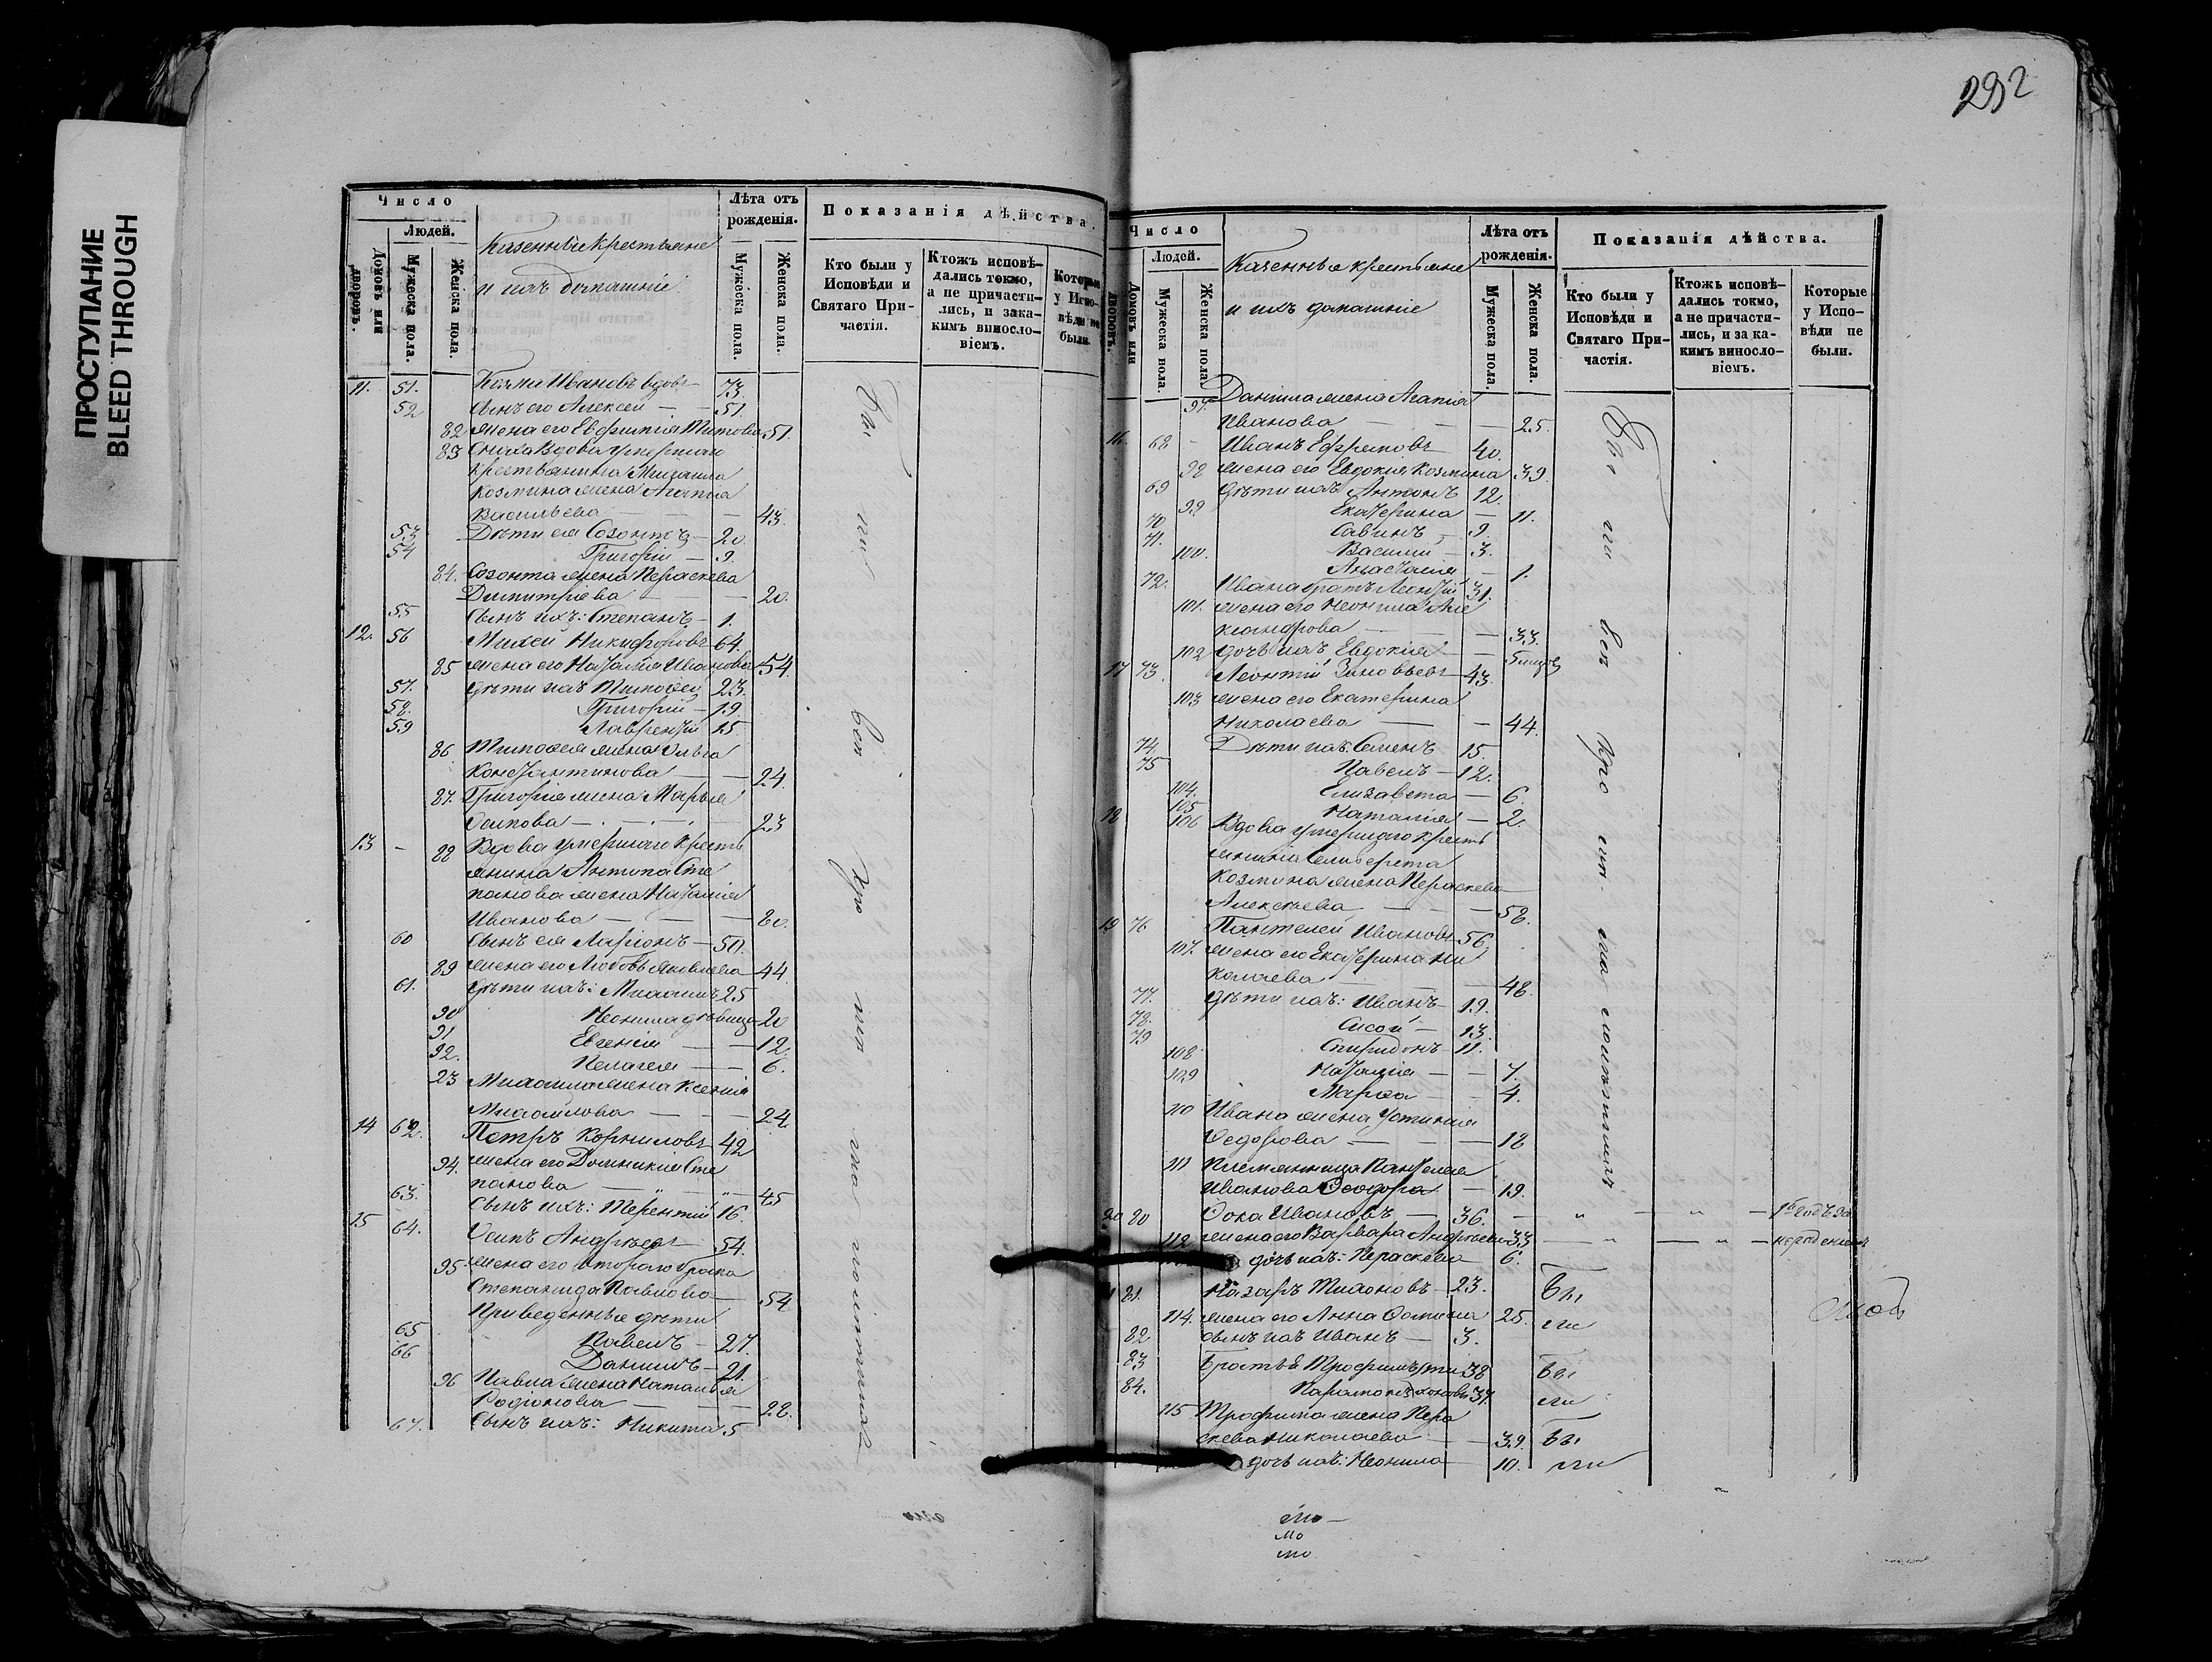 ПРОСТУПАНИЕ
BLEED THROUGH
Число
Людей.
Домовъ или дворовъ.
Мужеска пола.
Женска пола.
Казенные крестьяне
и ихъ домашніе
Лѣта отъ рожденія.
Мужеска пола.
Женска пола.
Показанія дѣйства.
Кто были у Исповѣди и Святаго При-
частія.
Ктожъ исповѣ-
дались токмо,
а не причасти-
лись, и за ка-
кимъ виносло-
віемъ.
Которые
у Испо-
вѣди не
были.
11. 51. Козма Ивановъ вдовъ — 73.
52 Сынъ его Алексей — 51.
82 жена его Евфимія Титова 51.
83 Сноха вдова умершаго
крестьянина Михаила
Козмина жена Агапія
Васильева — 43.
53 Дѣти ея Созонтъ — 20.
54 Григорій — 9.
84. Созонта жена Параскева
Димитріева — 20.
55 Сынъ ихъ: Степанъ — 1.
12. 56 Михей Никифоровъ 64.
85 жена его Наталія Иванова 54.
57. дѣти ихъ Тимофей 23.
58. Григорій — 19.
59 Лаврентій 15
86. Тимофея жена Ольга
Константинова — 24.
87. Григорія жена Марья
Осипова — 23
13 — 88 Вдова умершаго кресть
янина Антипа Сте
панова жена Наталія
Иванова — 80.
60 Сынъ ея Ларіонъ — 50.
89 жена его Любовь Яковлева 44.
61. дѣти ихъ: Михаилъ 25
90 Неонила дѣвица 20
91 Евгенія — 12.
92. Пелагея — 6.
93 Михаила жена Ксенія
Михайлова — 24
14 62. Петръ Корниловъ 42
94. жена его Домникія Сте
панова — 45
63. Сынъ ихъ: Терентій 16.
15 64. Осипъ Андреевъ 54.
95 жена его втораго брака
Степанида Павлова — 54
Приведенные дѣти
65 Павелъ — 27.
66 Даниилъ — 21.
96 Павла жена Наталья
Родіонова — 28.
67. Сынъ ихъ: Никита 5
Бы ли вси
292
Число
Людей.
Домовъ или дворовъ.
Мужеска пола.
Женска пола.
Казенные крестьяне
и ихъ домашніе
Лѣта отъ рожденія.
Мужеска пола.
Женска пола.
Показанія дѣйства.
Кто были у
Исповѣди и
Святаго При-
частія.
Ктожъ исповѣ-
дались токмо,
а не причасти-
лись, и за ка-
кимъ виносло-
віемъ.
Которые
у Испо-
вѣди не
были.
97. Даниила жена Агапія
Иванова — 25.
16. 68 Иванъ Ефремовъ 40.
98 жена его Евдокія Козмина 39.
69 дѣти ихъ Антонъ 12.
99 Екатерина — 11.
70 Савинъ — 9.
71. Василій — 3.
100. Анастасія — 1.
72. Ивана братъ Леонтій 31.
101. жена его Неонила Але
ксандрова — 33.
102 дочь ихъ Евдокія —
17 73. Леонтій Зиновьевъ 43.
103 жена его Екатерина
Николаева — 44.
74. Дѣти ихъ: Семенъ 15.
75 Павелъ — 12.
104. Елизавета — 6.
105 Наталія — 2.
18 106 Вдова умершаго кресть
янина Селиверста
Козмина жена Параскева
Алексеева — 58.
19 76 Пантелей Ивановъ 56.
107. жена его Екатерина Ни
колаева — 48.
77. дѣти ихъ: Иванъ 19.
78. Сисой — 13.
79 Спиридонъ 11.
108 Наталія — 7.
109 Марфа — 4.
110 Ивана жена Устинія
Ѳедорова — 18
111 Племянница Пантелея
Иванова Ѳеодора — 19.
20 80 Ѳока Ивановъ — 36.
112 жена его Варвара Андреева 33
дочь ихъ: Параскева 6.
81. Назаръ Тихоновъ — 23. Бы
114. жена его Анна 25. ли
82 сынъ ихъ Иванъ — 3.
83 Братья Трофимъ 38 Бы
84. Парамонъ 37. ли
115 Трофима жена Пара
скева Николаева — 39. Бы
дочь ихъ: Неонила 10. ли
Бы ли вси